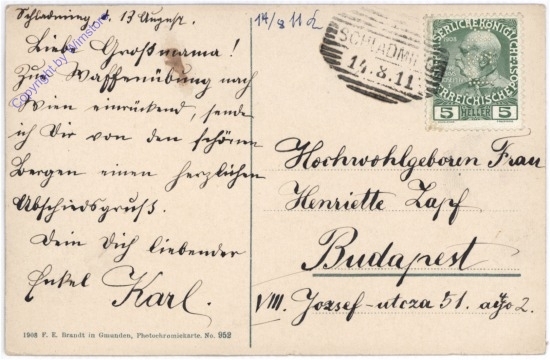 Schladming d. 13 August.
Liebe Großmama!
Zur Waffenübung nach
Wien einrückend, sende
ich Dir von den schönen
Bergen einen herzlichen
Abschiedsgruß.
Dein Dich liebender
Enkel Karl.
Copyright by Winstore
1908 F. E. Brandt in Gmunden, Photochromiekarte. No. 952
14/8 11
SCHLADMING
14.8.11
KAISERLICHE KÖNIGLICHE
ÖSTERREICHISCHE POST
1908
5 HELLER 5
Hochwohlgeboren Frau
Henriette Zapf
Budapest
VIII. Jozsef-utcza 51. ajto 2.